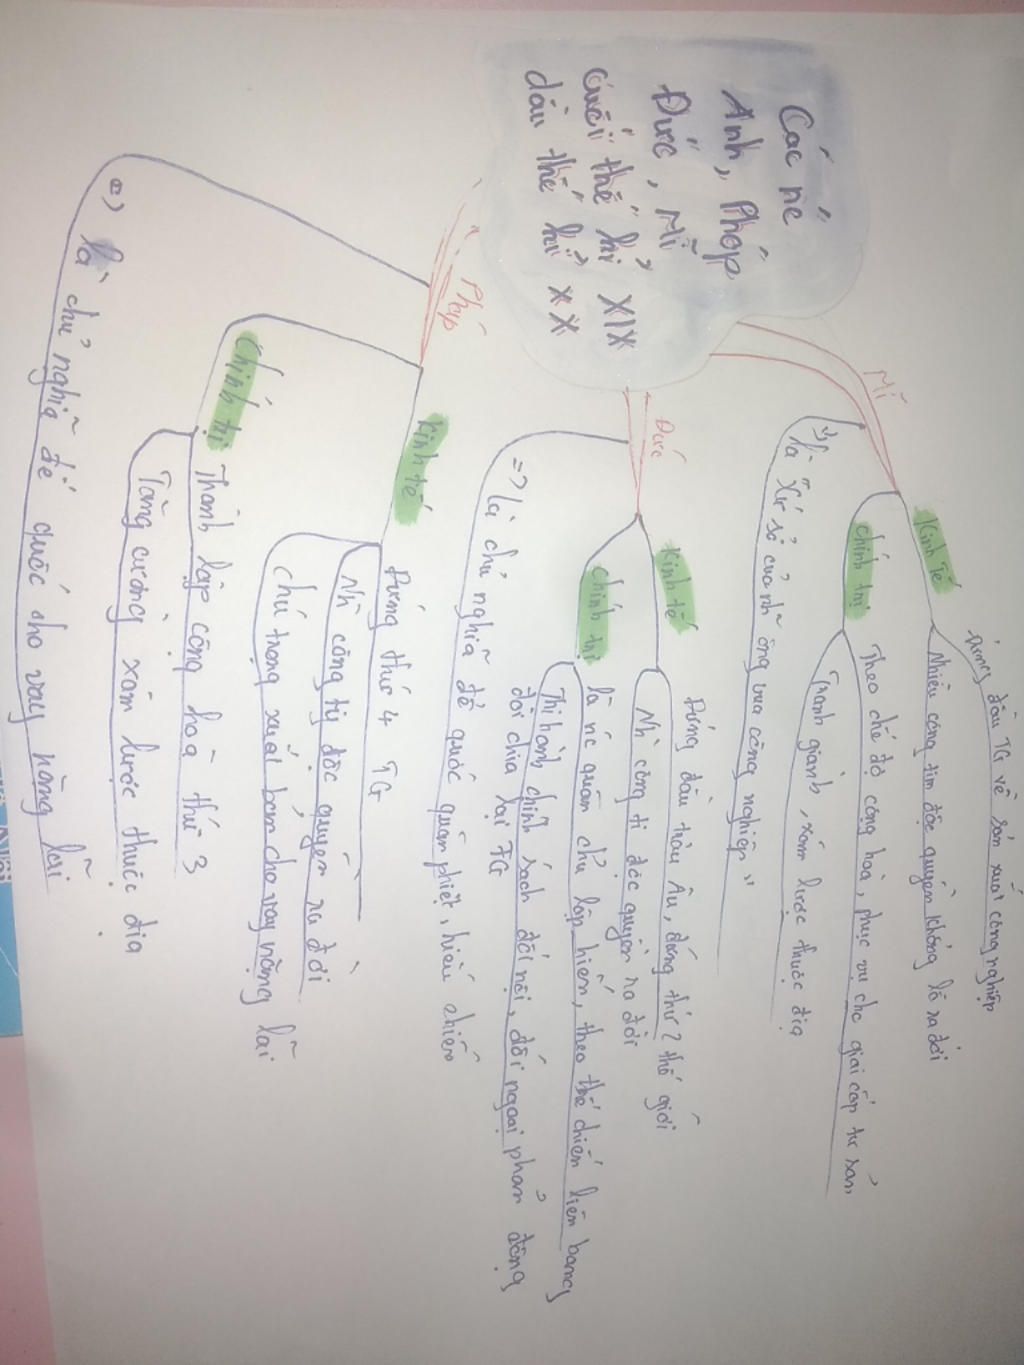 Các nc
Anh, Pháp
Đức, Mĩ
Cuối thế kỉ XIX
đầu thế kỉ XX
Mĩ
Kinh Tế
Đứng đầu TG về sản xuất công nghiệp
Nhiều công tim độc quyền khổng lồ ra đời
chính trị
Theo chế độ cộng hoà, phục vụ cho giai cấp tư sản,
Tranh giành, xâm lược thuộc địa
=> là "Xứ sở của nh~ ông vua công nghiệp"
Đức
Kinh tế
Đứng đầu châu Âu, đứng thứ 2 thế giới
Nh~ công ti độc quyền ra đời
chính trị
là nc quân chủ lập hiến, theo thể chiến liên bang
Thi hành chính sách đối nội, đối ngoại phản động
đòi chia lại TG
=> là chủ nghĩa đế quốc quân phiệt, hiếu chiến
Pháp
Kinh tế
Đứng thứ 4 TG
Nh~ công ty độc quyền ra đời
chú trọng xuất bản cho vay nặng lãi
Chính trị
Thành lập cộng hoà thứ 3
Tăng cường xâm lược thuộc địa
=> là chủ nghĩa đế quốc cho vay nặng lãi